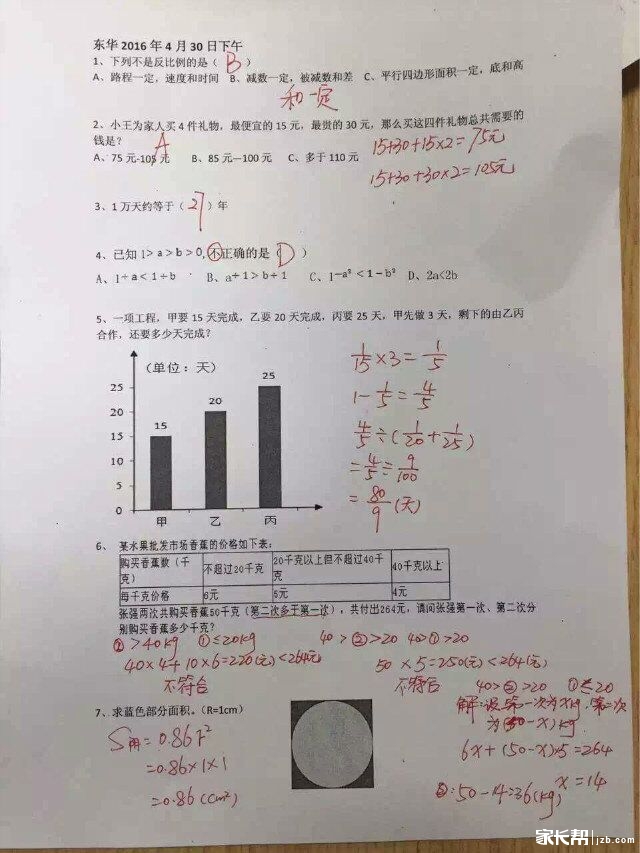 东华 2016 年 4 月 30 日下午
1、下列不是反比例的是（ B ）
A、路程一定，速度和时间 B、减数一定，被减数和差 C、平行四边形面积一定，底和高
和一定
2、小王为家人买 4 件礼物，最便宜的 15 元，最贵的 30 元，那么买这四件礼物总共需要的
钱是？ A
A、75 元-105 元 B、85 元—100 元 C、多于 110 元
15+30+15×2=75元
15+30+30×2=105元
3、1 万天约等于（ 27 ）年
4、已知 1＞a＞b＞0,不正确的是（ D ）
A、1÷a＜1÷b B、a÷1＞b÷1 C、1-a²＜1-b² D、2a<2b
5、一项工程，甲要 15 天完成，乙要 20 天完成，丙要 25 天，甲先做 3 天，剩下的由乙丙
合作，还要多少天完成？
（单位：天）
25
20
15
10
5
0
15
20
25
甲 乙 丙
1/15×3=1/5
1-1/5=4/5
4/5÷(1/20+1/25)
=4/5÷9/100
=80/9(天)
6、 某水果批发市场香蕉的价格如下表：
购买香蕉数（千克） 不超过20千克 20千克以上但不超过40千克 40千克以上
每千克价格 6元 5元 4元
张强两次共购买香蕉50千克（第二次多于第一次），共付出264元，请问张强第一次、第二次分
别购买香蕉多少千克？
②>40kg ①≤20kg
40×4+10×6=220(元)<264元
不符合
40>②>20 40>①>20
50×5=250(元)<264(元)
不符合
40>②>20 ①≤20
解:设第一次为xkg,第二次
为(50-x)kg
6x+(50-x)×5=264
x=14
②:50-14=36(kg)
7、求蓝色部分面积。（R=1cm）
S阴=0.86r²
=0.86×1×1
=0.86(cm²)
家长帮 jzb.com